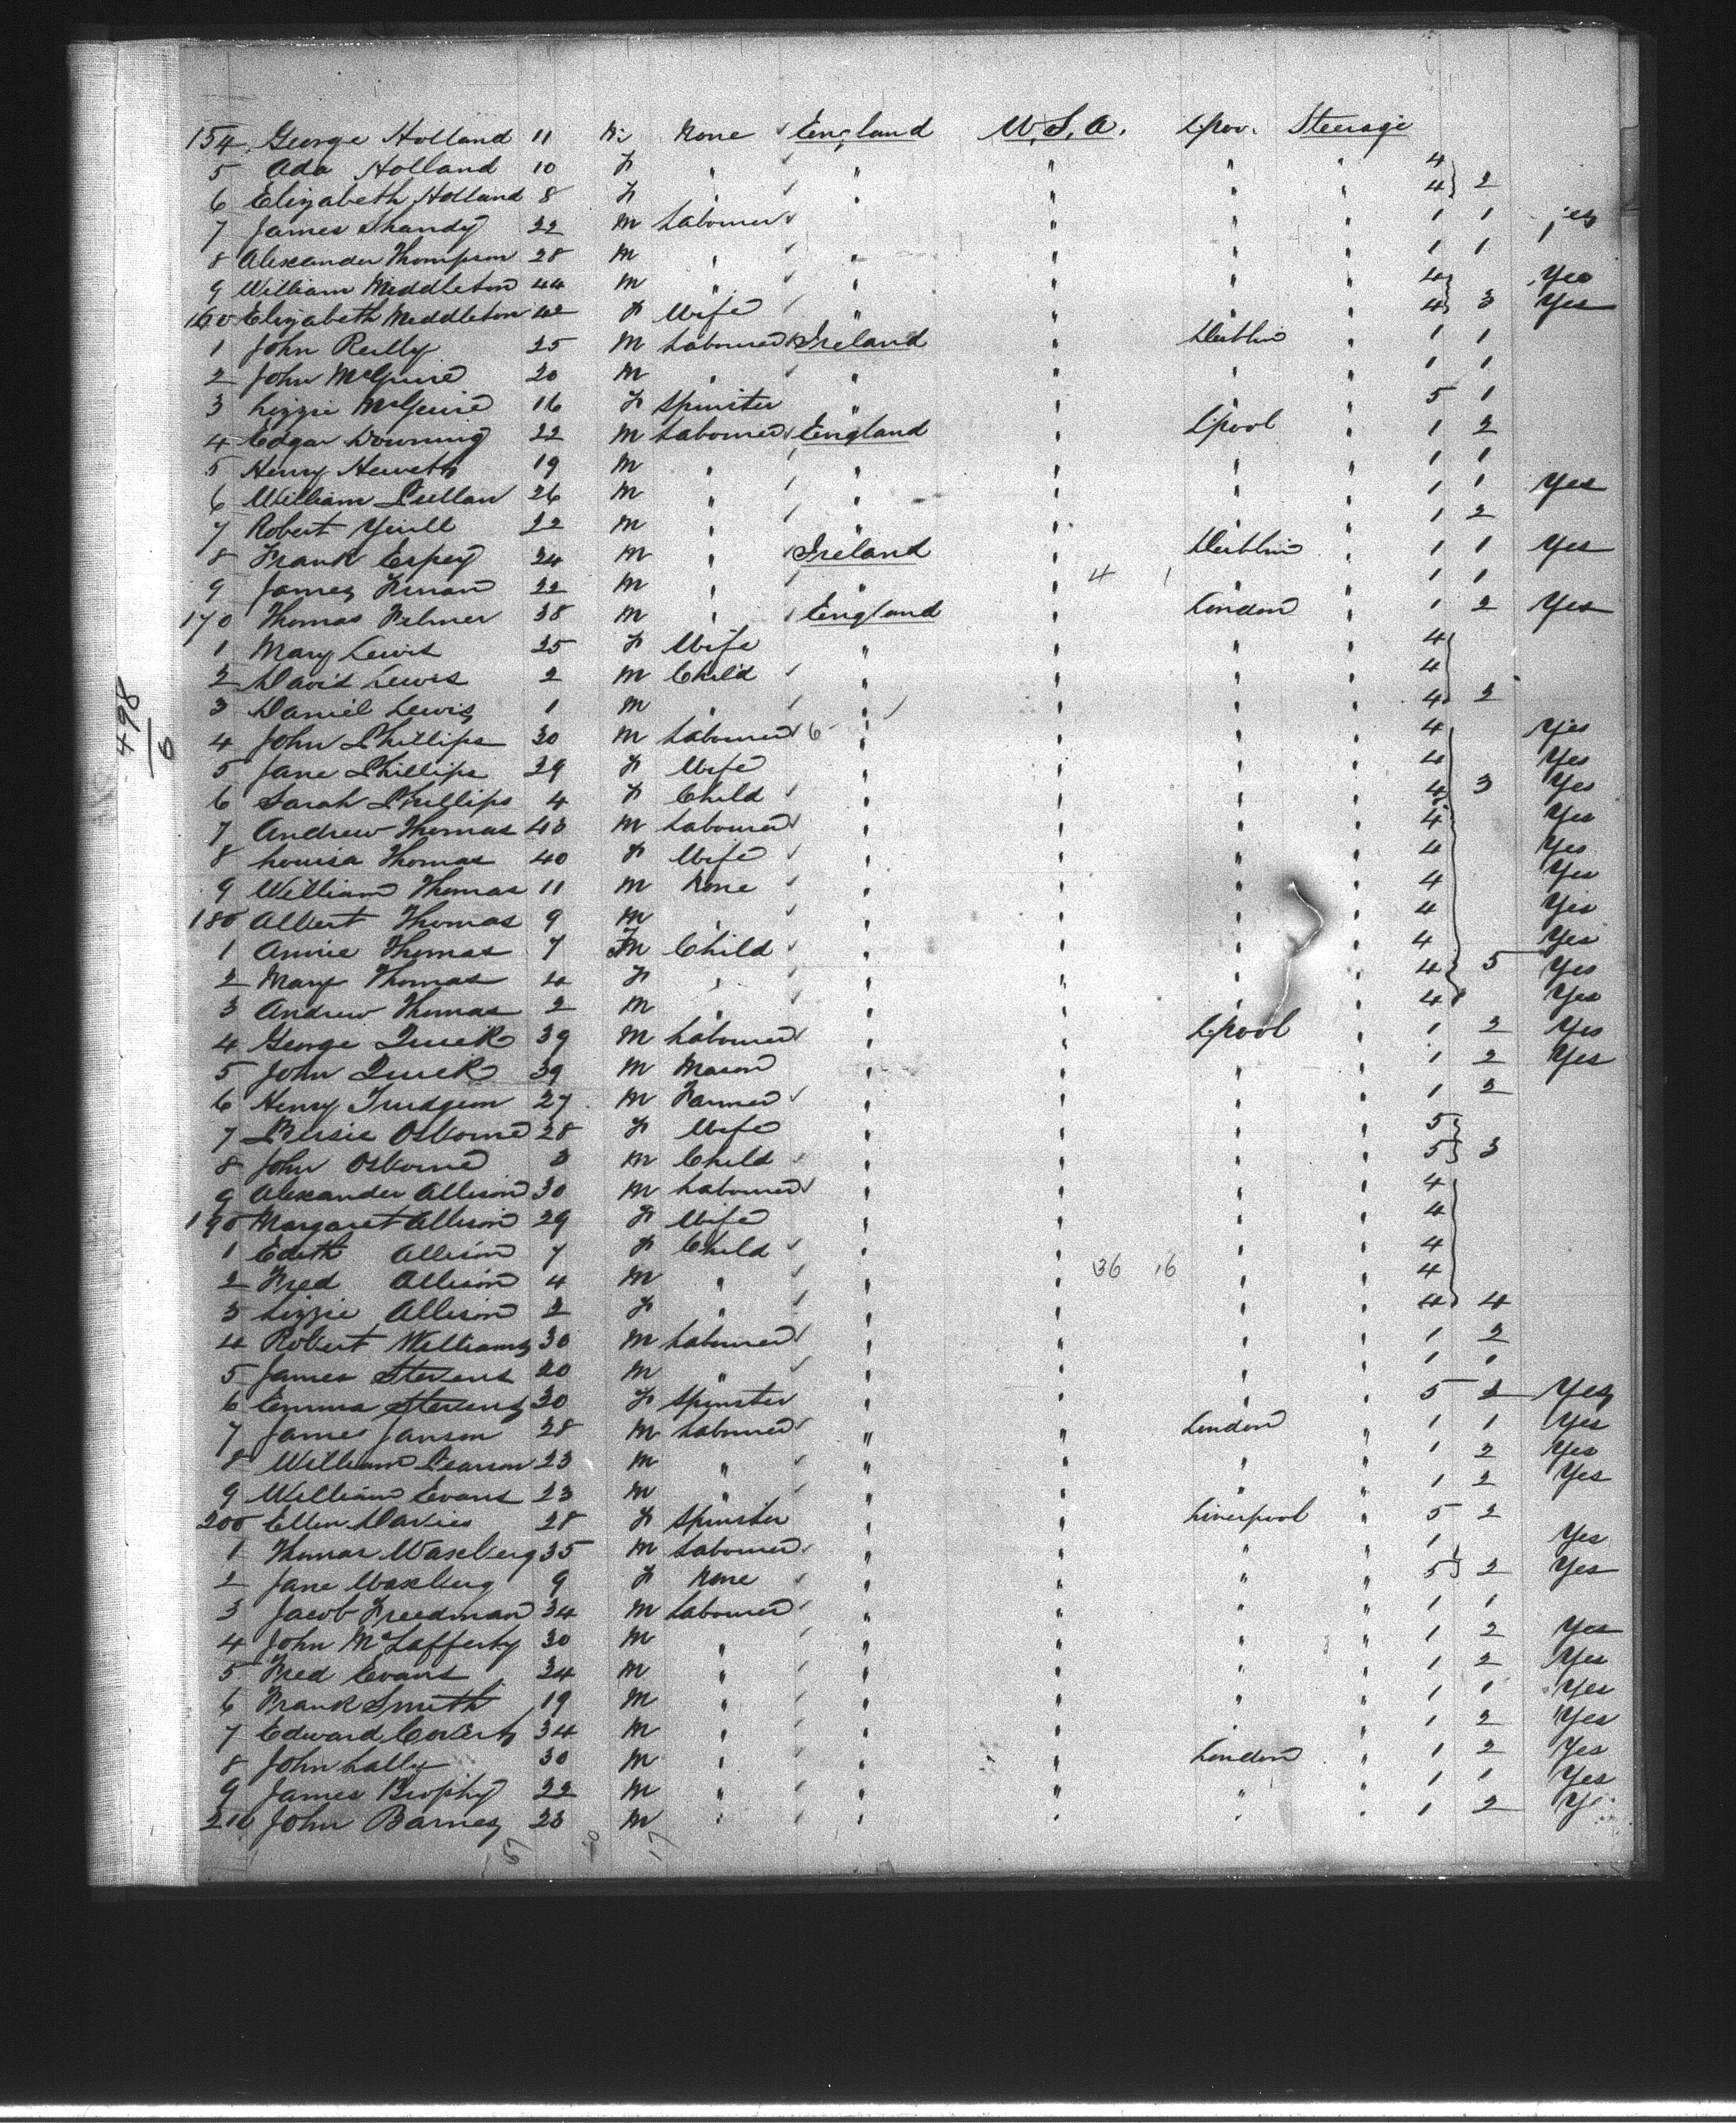 154 George Holland 11 None England U.S.A. L'pool Steerage
5 Ada Holland 10 F " " " " " 4
6 Elizabeth Holland 8 F " " " " " 4 2
7 James Shandy 22 M Labourer " " " 1 1 yes
8 Alexander Thompson 28 M " " " " " 1 1
9 William Middleton 44 M " " " " " 4 Yes
160 Elizabeth Middleton 42 F Wife " " " " 4 3 Yes
1 John Reilly 25 M Labourer Ireland " Dublin " 1 1
2 John McGuire 20 M " " " " " 1 1
3 Lizzie McGuire 16 F Spinster " " " " 5 1
4 Edgar Downing 22 M Labourer England " L'pool " 1 2
5 Henry 19 M " " " " " 1 1
6 William Pullan 26 M " " " " " 1 1 Yes
7 Robert Yuill 22 M " " " " " 1 2
8 Frank Espey 24 M " Ireland " Dublin " 1 1 Yes
9 James 22 M " " " 4 1 " " 1 1
170 Thomas 38 M " England " London " 1 2 Yes
1 Mary Lewis 25 F Wife " " " " 4
2 David Lewis 2 M Child " " " " 4
3 Daniel Lewis 1 M " " " " " 4 2
4 John Phillips 30 M Labourer 6 " " " " 4 Yes
5 Jane Phillips 29 F Wife " " " " 4 Yes
6 Sarah Phillips 4 F Child " " " " 4 3 Yes
7 Andrew Thomas 43 M Labourer " " " " 4 Yes
8 Louisa Thomas 40 F Wife " " " " 4 Yes
9 William Thomas 11 M None " " " " 4 Yes
180 Albert Thomas 9 M " " " " " 4 Yes
1 Annie Thomas 7 F Child " " " " 4 Yes
2 Mary Thomas 4 F " " " " " 4 5 Yes
3 Andrew Thomas 2 M " " " " " 4 Yes
4 George Quick 39 M Labourer " " L'pool " 1 2 Yes
5 John Quick 39 M Mason " " " " 1 2 Yes
6 Henry Trudgeon 27 M Farmer " " " " 1 2
7 Osborne 28 F Wife " " " " 5
8 John Osborne 3 M Child " " " " 5 3
9 Alexander Allison 30 M Labourer " " " " 4
190 Margaret Allison 29 F Wife " " " " 4
1 Edith Allison 7 F Child " " " " 4
2 Fred Allison 4 M " " " 36 16 " " 4
3 Lizzie Allison 2 F " " " " " 4 4
4 Robert Williams 30 M Labourer " " " " 1 2
5 James Stevens 20 M " " " " " 1 1
6 Emma Stevens 20 F Spinster " " " " 5 2 Yes
7 James Janson 28 M Labourer " " London " 1 1 Yes
8 William Pearson 23 M " " " " " 1 2 Yes
9 William Evans 23 M " " " " " 1 2 Yes
200 Ellen Davies 28 F Spinster " " Liverpool " 5 2
1 Thomas Waxberg 35 M Labourer " " " " 1 Yes
2 Jane Waxberg 9 F None " " " " 5 2 Yes
3 Jacob Freedman 34 M Labourer " " " " 1 1
4 John McLafferty 30 M " " " " " 1 2 Yes
5 Fred Evans 24 M " " " " " 1 2 Yes
6 Frank Smith 19 M " " " " " 1 1 Yes
7 Edward 34 M " " " " " 1 2 Yes
8 John Lally 30 M " " " London " 1 2 Yes
9 James Brophy 22 M " " " " " 1 1 Yes
210 John Barnes 23 M " " " " " 1 2
498/6